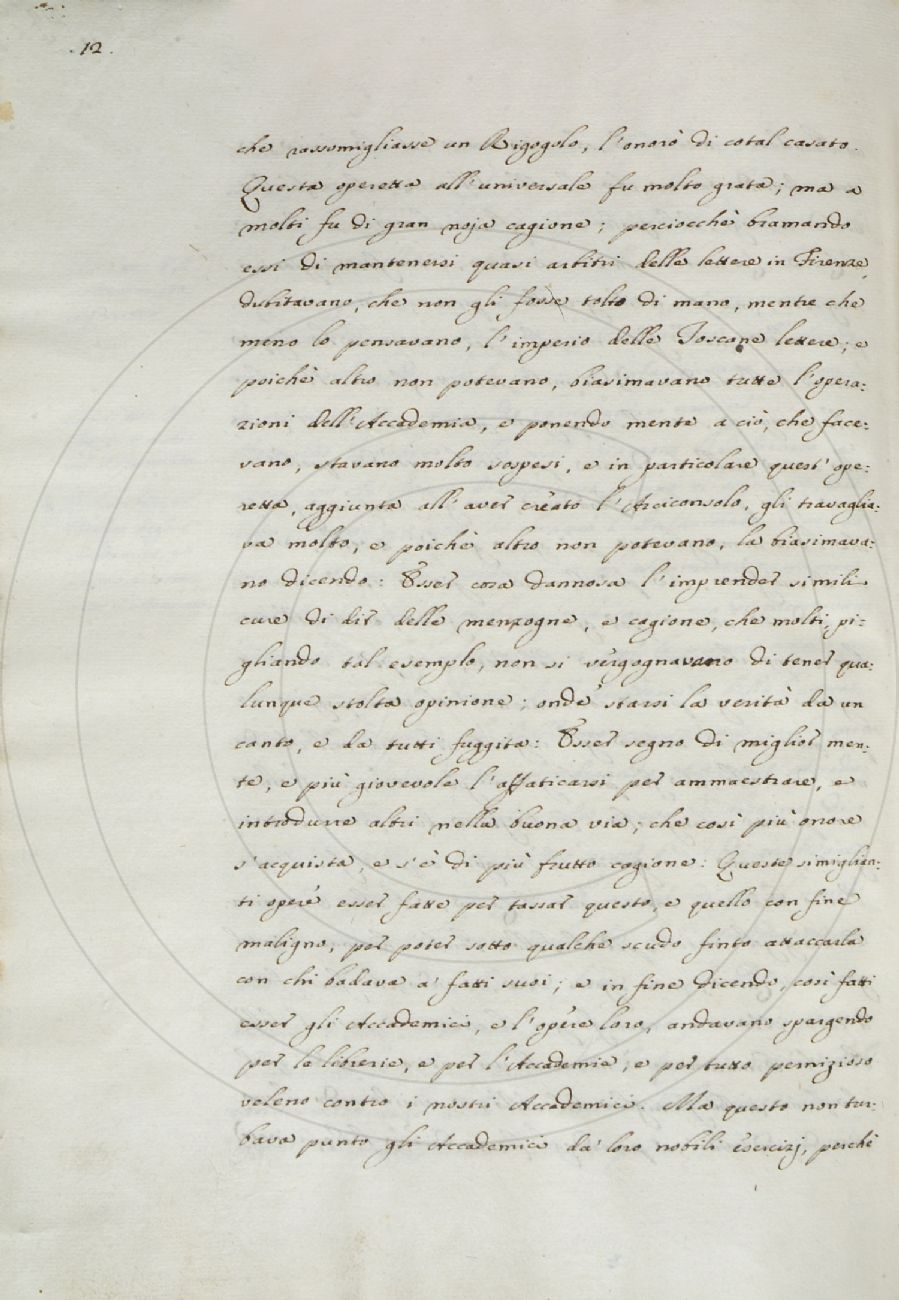 .12.
che rassomigliasse un Rigogolo, l'onorò di cotal casato.
Questa operetta all'universale fu molto grata; ma a
molti fu di gran noja cagione; perciocchè bramando
essi di mantenersi quasi arbitri delle lettere in Firenze,
dubitavano, che non gli fosse tolto di mano, mentre che
meno lo pensavano, l'imperio delle Toscane lettere; e
poichè altro non potevano, biasimavano tutte l'opera:
zioni dell'Accademia, e ponendo mente a ciò, che face:
vano, stavano molto sospesi, e in particolare quest'ope:
retta, aggiunta all'aver creato l'Arciconsolo, gli travaglia:
va molto, e poichè altro non potevano, la biasimava:
no dicendo: Esser cosa dannosa l'imprender simili
cure di dir delle menzogne, e cagione, che molti, pi:
gliando tal esemplo, non si vergognavano di tener qua:
lunque stolta opinione; onde starsi la verità da un
canto, e da tutti fuggita: Esser segno di miglior men:
te, e più giovevole l'affaticarsi per ammaestrare, e
introdurre altri nella buona via; che così più onore
s'acquista, e s'è di più frutto cagione: Queste simiglian:
ti opere esser fatte per tassar questo, e quello con fine
maligno, per poter sotto qualche scudo finto attaccarla
con chi badava a' fatti suoi; e in fine dicendo, così fatti
esser gli Accademici, e l'opere loro, andavano spargendo
per le librerie, e per l'Accademie, e per tutto pernizioso
veleno contro i nostri Accademici. Ma questo non tur:
bava punto gli Accademici da' loro nobili esercizj, perchè